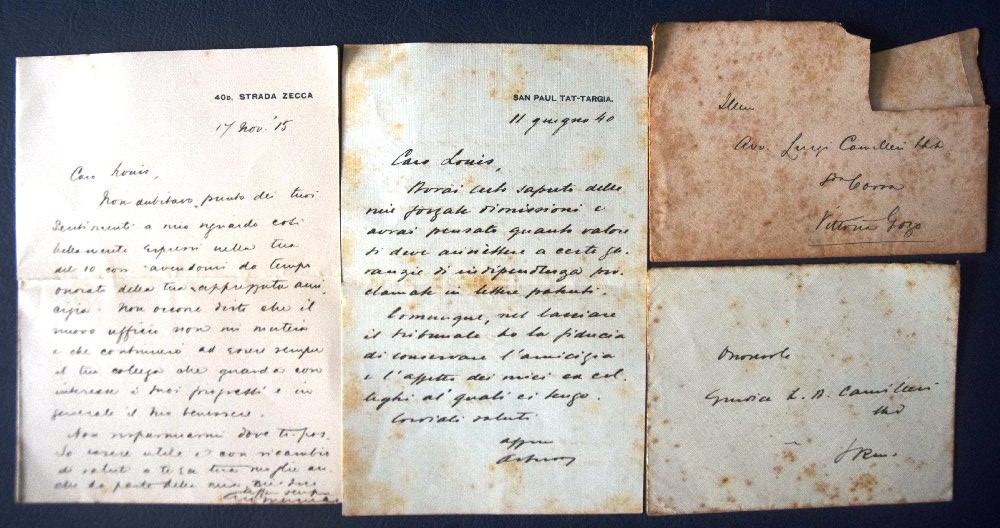 40D, STRADA ZECCA
17 Nov. '15
Caro Louis,
Non dubitavo punto dei tuoi
sentimenti a mio riguardo così
bellamente espressi nella tua
del 10 con avendomi da tempo
onorato della tua apprezzata ami-
cizia. Non occorre dirti che il
nuovo ufficio non mi muterà
e che continuerò ad essere sempre
il tuo collega che guarda con
interesse i tuoi progressi e in
generale il tuo benessere.
Non risparmiarmi dove ti pos-
so essere utile e con ricambio
di saluti a te e a tua moglie an-
che da parte della mia,
SAN PAUL TAT-TARGIA.
11 giugno 40
Caro Louis,
Avrai certo saputo delle
mie forzate dimissioni e
avrai pensato quanto valore
si deve annettere a certe ga-
ranzie di indipendenza pro-
clamate in lettere patenti.
Comunque, nel lasciare
il tribunale ho la fiducia
di conservare l'amicizia
e l'affetto dei miei ex col-
leghi ai quali ci tengo.
Cordiali saluti
affmo
Arturo
Illmo
Avv. Luigi Camilleri LL.D
Victoria Gozo
Onorevole
Giudice L. A. Camilleri
LL.D